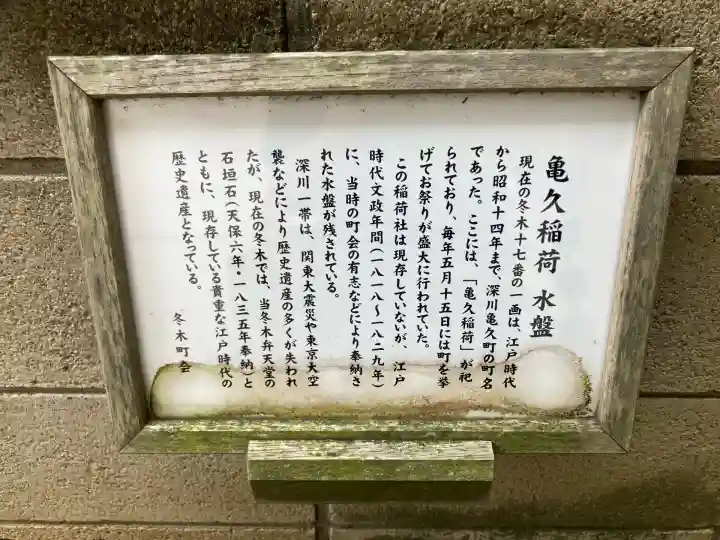 亀久稲荷 水盤
現在の冬木十七番の一画は、江戸時代
から昭和十四年まで、深川亀久町の町名
であった。ここには、「亀久稲荷」が祀
られており、毎年五月十五日には町を挙
げてお祭りが盛大に行われていた。
この稲荷社は現存していないが、江戸
時代文政年間(一八一八〜一八二九年)
に、当時の町会の有志などにより奉納さ
れた水盤が残されている。
深川一帯は、関東大震災や東京大空
襲などにより歴史遺産の多くが失われ
たが、現在の冬木では、当冬木弁天堂の
石垣石(天保六年・一八三五年奉納)と
ともに、現存している貴重な江戸時代の
歴史遺産となっている。
冬木町会